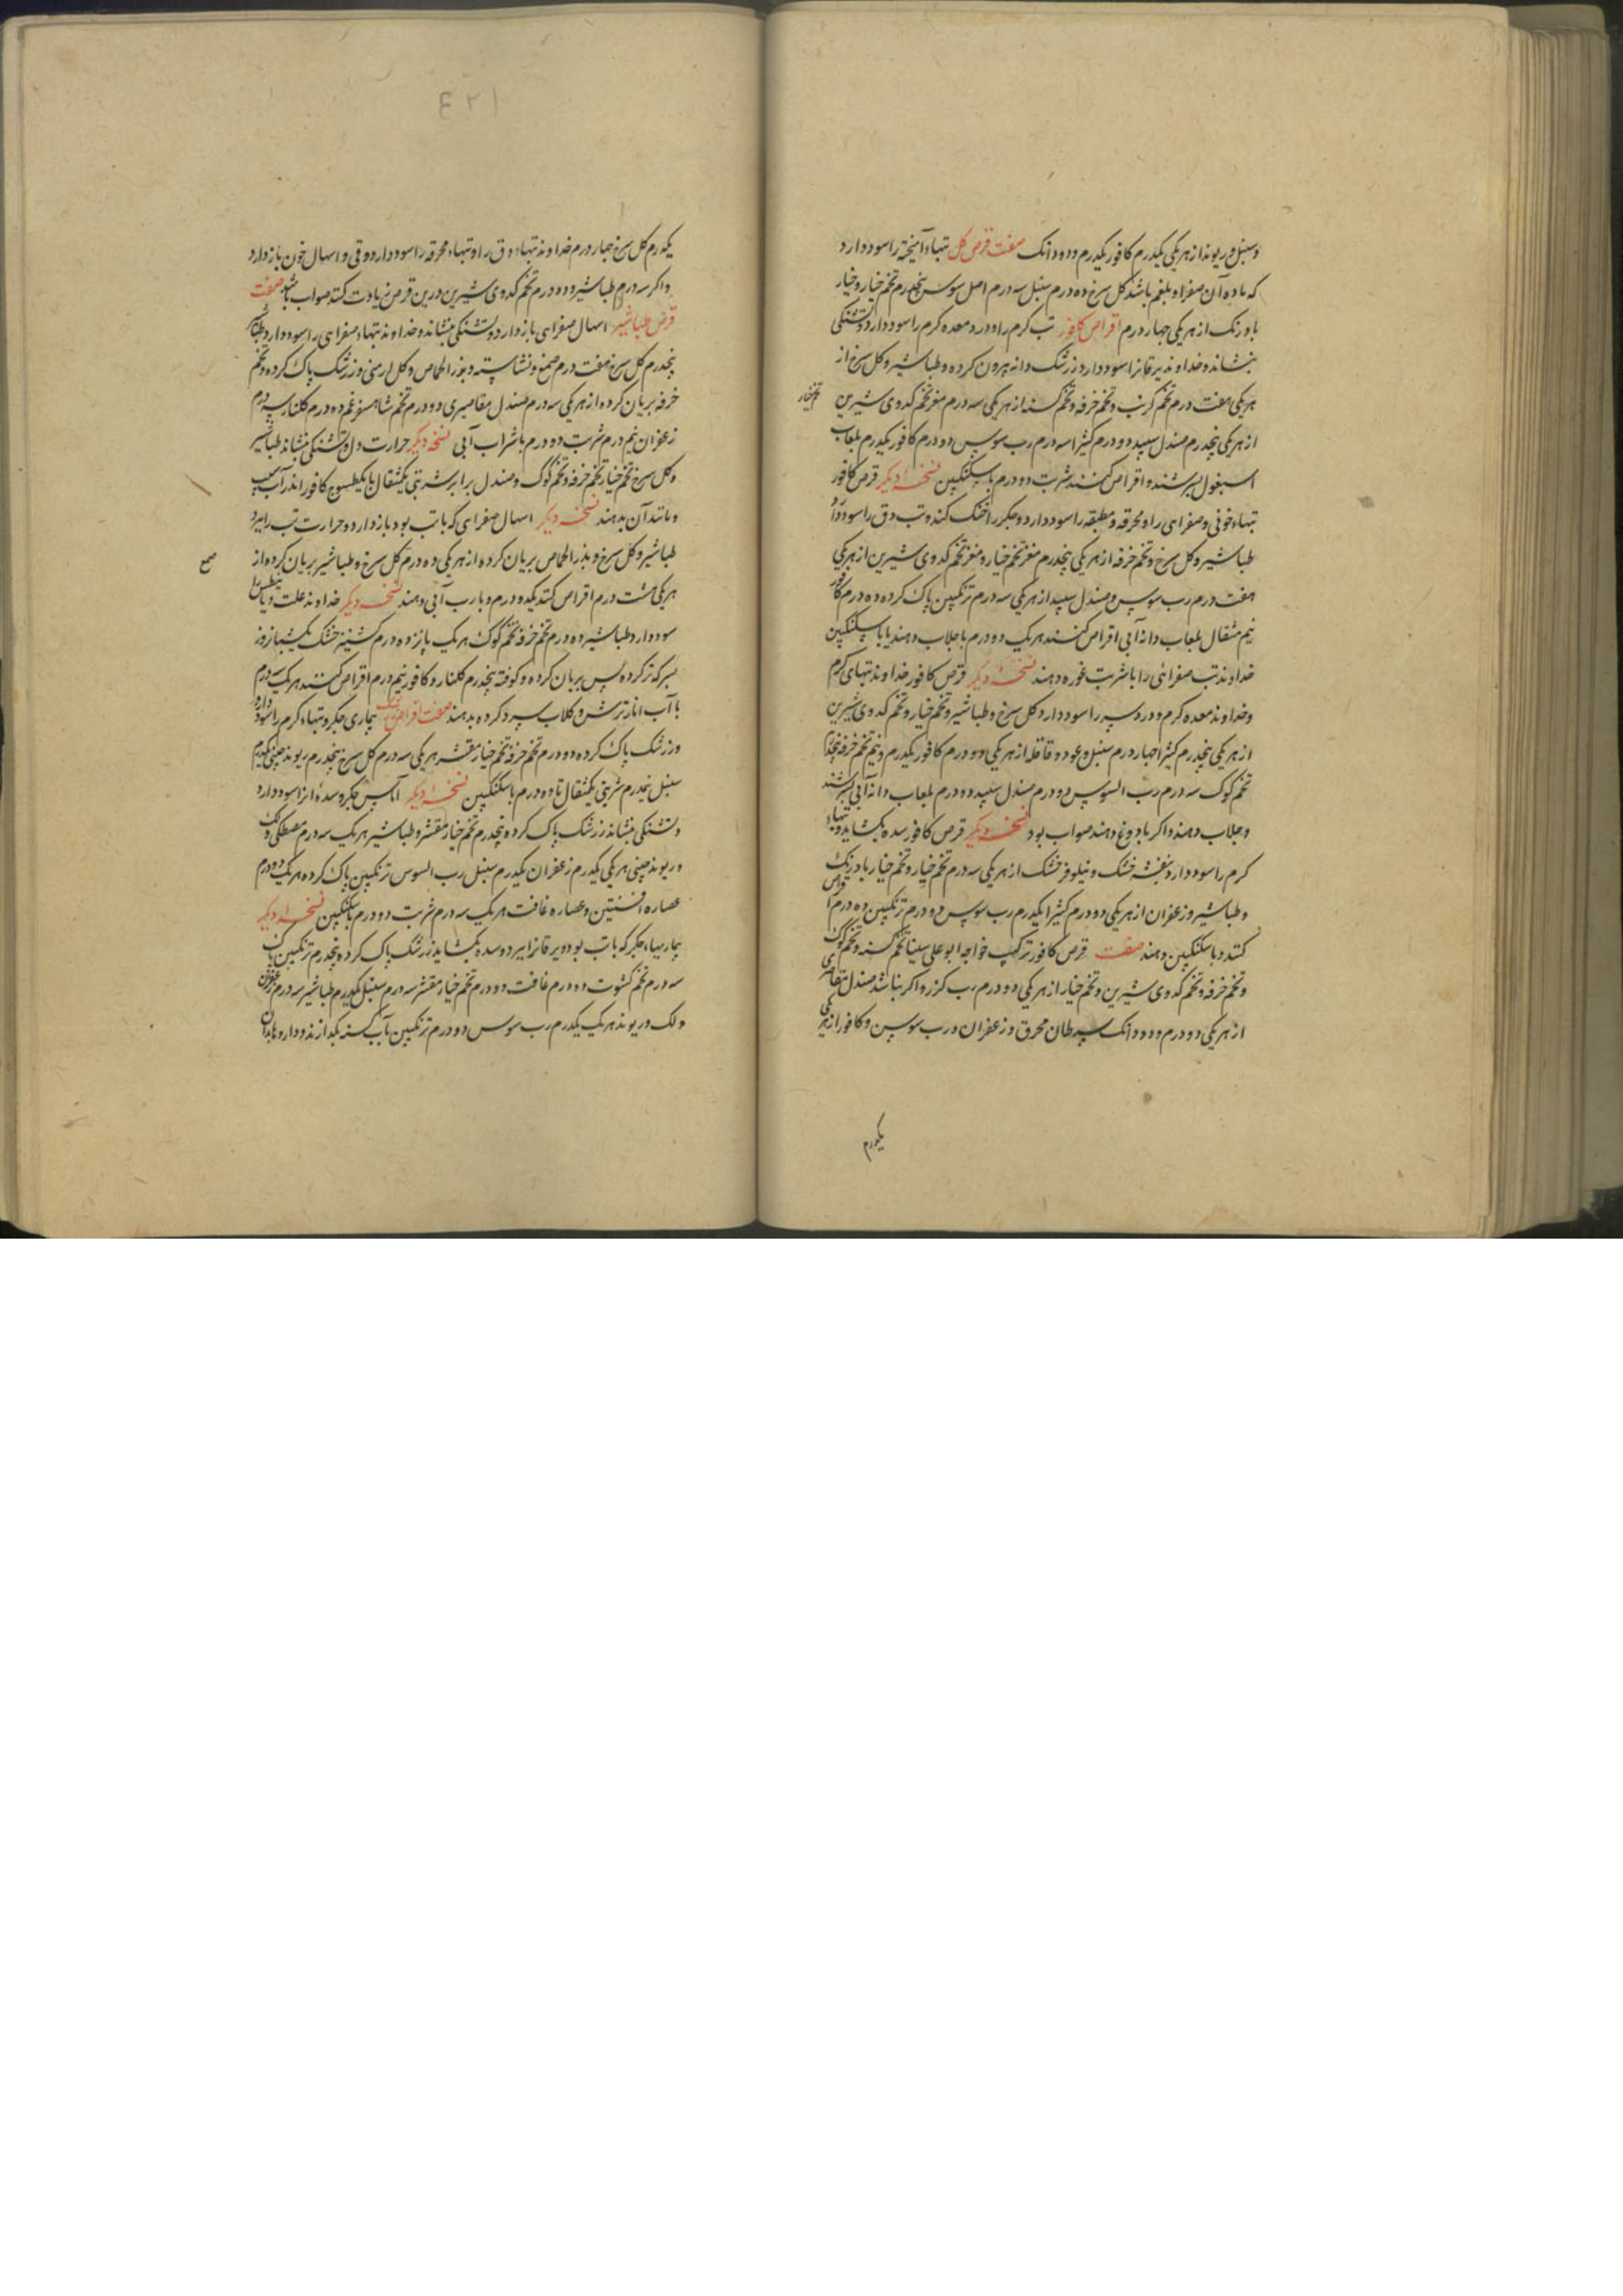 وسنبل وریوند از هر یکی یکدرم کافور یکدرم ودو دانک صفت قرص کل تبهاء آمیخته را سود دارد
که ماده آن صفرا و بلغم باشد کل سرخ ده درم سنبل سه درم اصل سوس پنجدرم تخم خیار و خیار
بادرنک از هر یکی چهار درم اقراص کافور تب کرم را و درد معده کرم را سود دارد و تشنکی
بنشاند و خداوند یرقانرا سود دارد زرشک دانه بیرون کرده و طباشیر و کل سرخ از
هر یکی هفت درم تخم کرنب و تخم خرفه و تخم کسنه از هر یکی سه درم مغز تخم کدوی شیرین
تخم خیار
از هر یکی پنجدرم صندل سپید دو درم کثیرا سه درم رب سوس دو درم کافور یکدرم بلعاب
اسبغول بسرشند و اقراص کنند شربت دو درم باسکنکبین نسخهٔ دیکر قرص کافور
تبهاء خونی و صفرایی را و محرقه و مطبقه را سود دارد و جکر را خنک کند و تب دق را سود دارد
طباشیر و کل سرخ و تخم خرفه از هر یکی پنجدرم مغز تخم خیار و مغز تخم کدوی شیرین از هر یکی
هفت درم رب سوس و صندل سپید از هر یکی سه درم ترنکبین پاک کرده ده درم کافور
نیم مثقال بلعاب دانه آبی اقراص کنند هر یک دو درم با جلاب دهند یا با سکنکبین
خداوند تب صفرائی را با شربت غوره دهند نسخهٔ دیکر قرص کافور خداوند تبهای کرم
و خداوند معده کرم و درد سپرز را سود دارد کل سرخ و طباشیر و تخم خیار و تخم کدوی شیرین
از هر یکی پنجدرم کثیرا چهار درم سنبل و عود و قاقله از هر یکی دو درم کافور یکدرم و نیم تخم خرفه پنجدرم
تخم کوک سه درم رب السوس دو درم صندل سپید دو درم بلعاب دانه آبی بسرشند
و بجلاب دهند و اکر بادوغ دهند صواب بود نسخهٔ دیکر قرص کافور سده بکشاید و تبهاء
کرم را سود دارد بنفشه خشک و نیلوفر خشک از هر یکی سه درم تخم خیار و تخم خیار بادرنک
و طباشیر و زعفران از هر یکی دو درم کثیرا یکدرم رب سوس دو درم ترنکبین ده درم اقراص
کنند و باسکنکبین دهند صفت قرص کافور ترکیب خواجه ابو علی سینا تخم کسنه و تخم کوک
و تخم خرفه و تخم کدوی شیرین و تخم خیار از هر یکی دو درم رب کزر و اکر نباشد صندل مقاصیری
از هر یکی دو درم و دو دانک سرطان محرق و زعفران و رب سوس و کافور از هر یکی
یکدرم
۴۲۱
یکدرم کل سرخ چهار درم خداوند تبهاء دق را و تبهاء محرقه را سود دارد و قی و اسهال خون باز دارد
و اکر سه درم طباشیر و ده درم تخم کدوی شیرین درین قرص زیادت کنند صواب باشد صفت
قرص طباشیر اسهال صفرای باز دارد و تشنکی بنشاند و خداوند تبهاء صفرای را سود دارد طباشیر
پنجدرم کل سرخ هفت درم صمغ و نشاسته و بذر الحماض و کل ارمنی و زرشک پاک کرده و تخم
خرفه بریان کرده از هر یکی سه درم صندل مقاصیری دو درم تخم شاهسفرغم ده درم کلنار سه درم
زعفران نیم درم شربت دو درم با شراب آبی نسخهٔ دیکر حرارت دل و تشنکی بنشاند طباشیر
و کل سرخ تخم خیار تخم خرفه و تخم کوک و صندل برابر شربتی یکمثقال با یکطسوج کافور اندر آب سیب
و مانند آن بدهند نسخهٔ دیکر اسهال صفرای که با تب بود باز دارد و حرارت تب را ببرد
طباشیر و کل سرخ و بذر الحماض بریان کرده از هر یکی ده درم کل سرخ و طباشیر بریان کرده از
صح
هر یکی هشت درم اقراص کنند یکدو درم و با رب آبی دهند نسخهٔ دیکر خداوند علت دیابیطس را
سود دارد طباشیر ده درم تخم خرفه تخم کوک هر یک پانزده درم کشنیز خشک یکشبانروز
بسرکه تر کرده پس بریان کرده و کوفته پنجدرم کلنار و کافور نیم درم اقراص کنند هر یک سه درم
با آب انار ترش و کلاب سرد کرده بدهند صفت اقراص زرشک بیماری جکر و تبهاء کرم را سود دارد
و زرشک پاک کرده ده درم تخم خرفه تخم خیار مقشر هر یکی سه درم کل سرخ پنجدرم ریوند چینی یکدرم
سنبل نیمدرم شربتی یکمثقال تا دو درم باسکنکبین نسخهٔ دیکر آماس جکر و سدهٔ انرا سود دارد
و تشنکی بنشاند زرشک پاک کرده پنجدرم تخم خیار مقشر و طباشیر هر یک سه درم مصطکی و لک
و ریوند چینی هر یکی یکدرم زعفران یکدرم سنبل رب السوس ترنکبین پاک کرده هر یک دو درم
عصاره افسنتین و عصاره غافت هر یک سه درم شربت دو درم باسکنکبین نسخهٔ دیکر
بیماریهاء جکر که با تب بود و یرقانرا ببرد و سده بکشاید زرشک پاک کرده پنجدرم ترنکبین پاک
سه درم تخم کشوت ده درم غافت دو درم تخم خیار مقشر سه درم سنبل یکدرم طباشیر سه درم زعفران
و لک و ریوند هر یک یکدرم رب سوس دو درم ترنکبین بآب کسنه بکدازند و داروها بدان